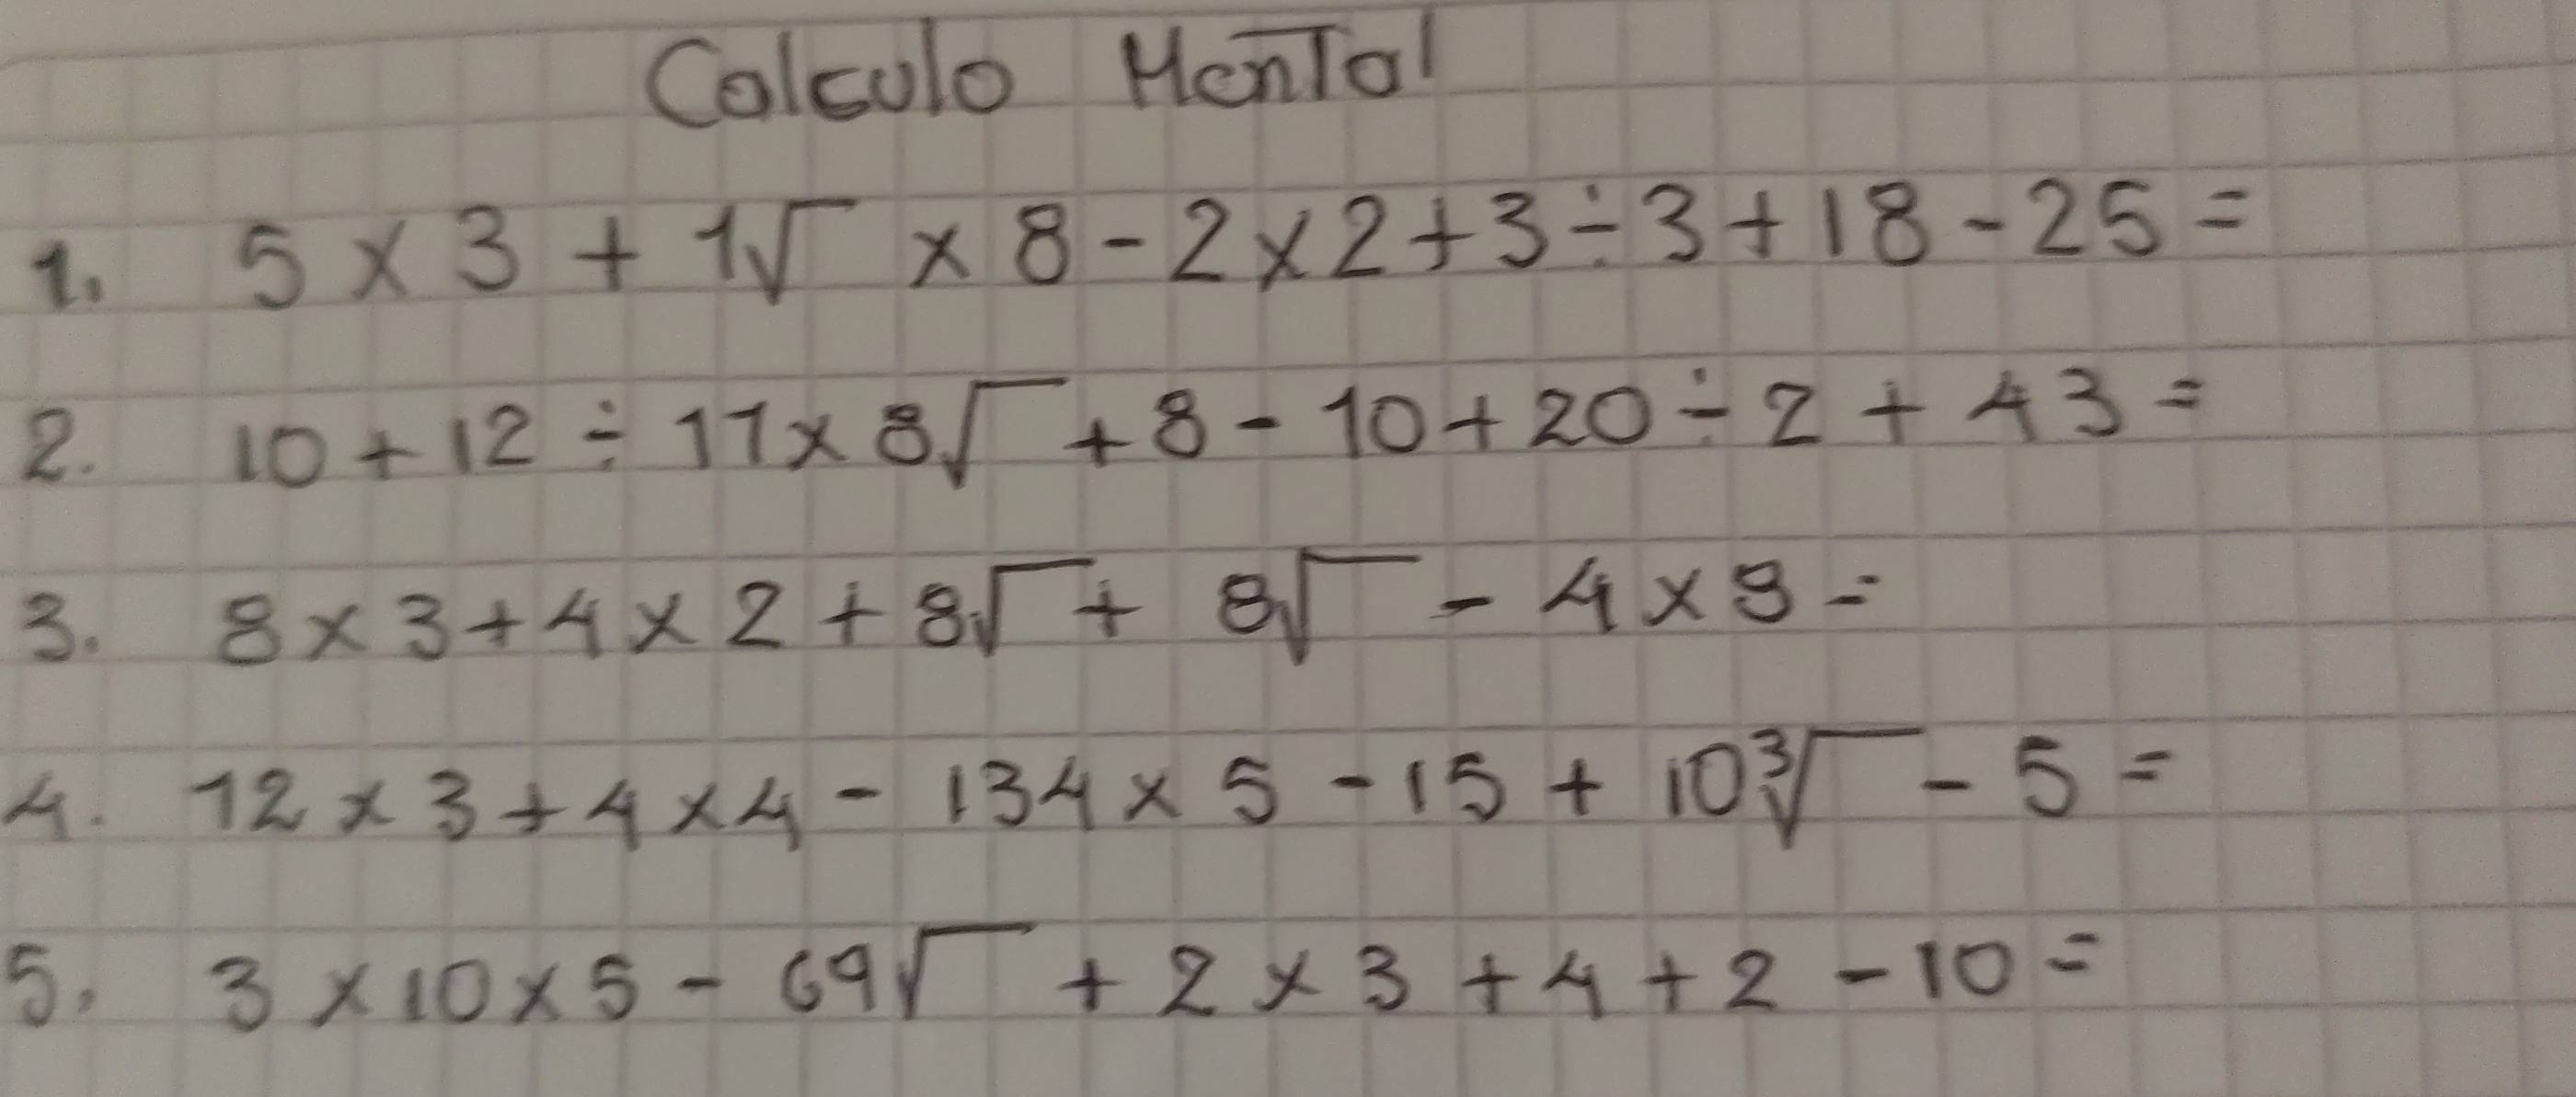 Calculo Mental
1. 5 x 3 + 1√ x 8 - 2 x 2 + 3 ÷ 3 + 18 - 25 =
2. 10 + 12 ÷ 11 x 8√ + 8 - 10 + 20 ÷ 2 + 43 =
3. 8 x 3 + 4 x 2 + 8√ + 8√ - 4 x 9 =
4. 12 x 3 + 4 x 4 - 134 x 5 - 15 + 10∛ - 5 =
5. 3 x 10 x 5 - 69√ + 2 x 3 + 4 + 2 - 10 =